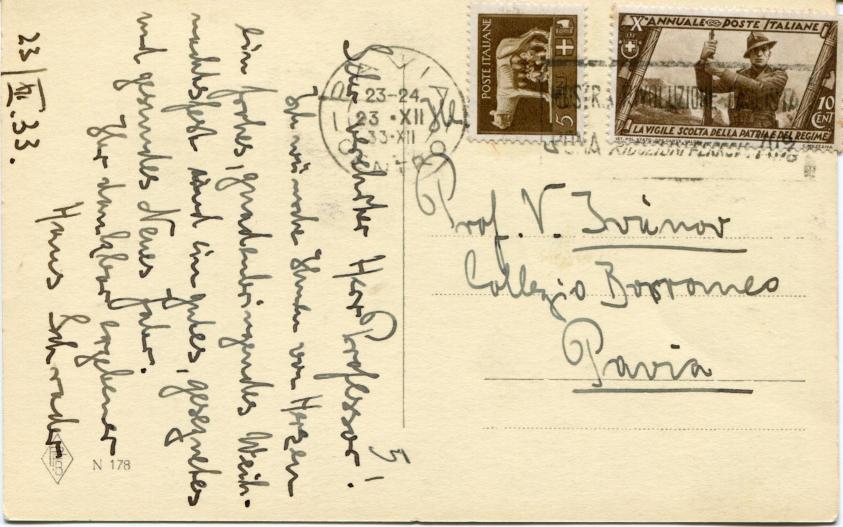 23/XII.33.
Sehr verehrter Herr Professor!
Ich wünsche Ihnen von Herzen
ein frohes, gnadenbringendes Weih-
nachtsfest und ein gutes, gesegnetes
und gesundes Neues Jahr.
Ihr dankbar ergebener
Hans Schrader
N 178
PAVIA
23-24
23·XII
33·XII
CENTRO
POSTE ITALIANE
5
X° ANNUALE POSTE ITALIANE
10
CENT
LA VIGILE SCOLTA DELLA PATRIA E DEL REGIME
MOSTRA RIVOLUZIONE FASCISTA
ROMA RIDUZIONI FERROV.
Prof. V. Ivánov
Collegio Borromeo
Pavia
5